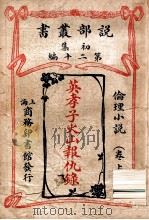 說部叢書
初集
第二十編
倫理小說
(卷上)
英孝子火山報仇錄
上海
商務印書館發行